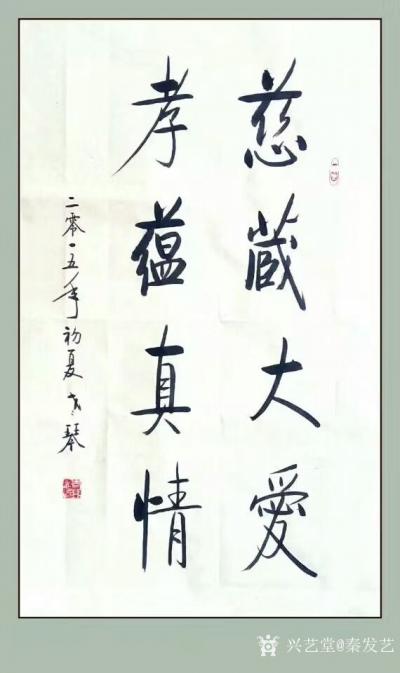 慈藏大愛
孝蕴真情
二零一五年初夏
琴
兴艺堂@秦发艺